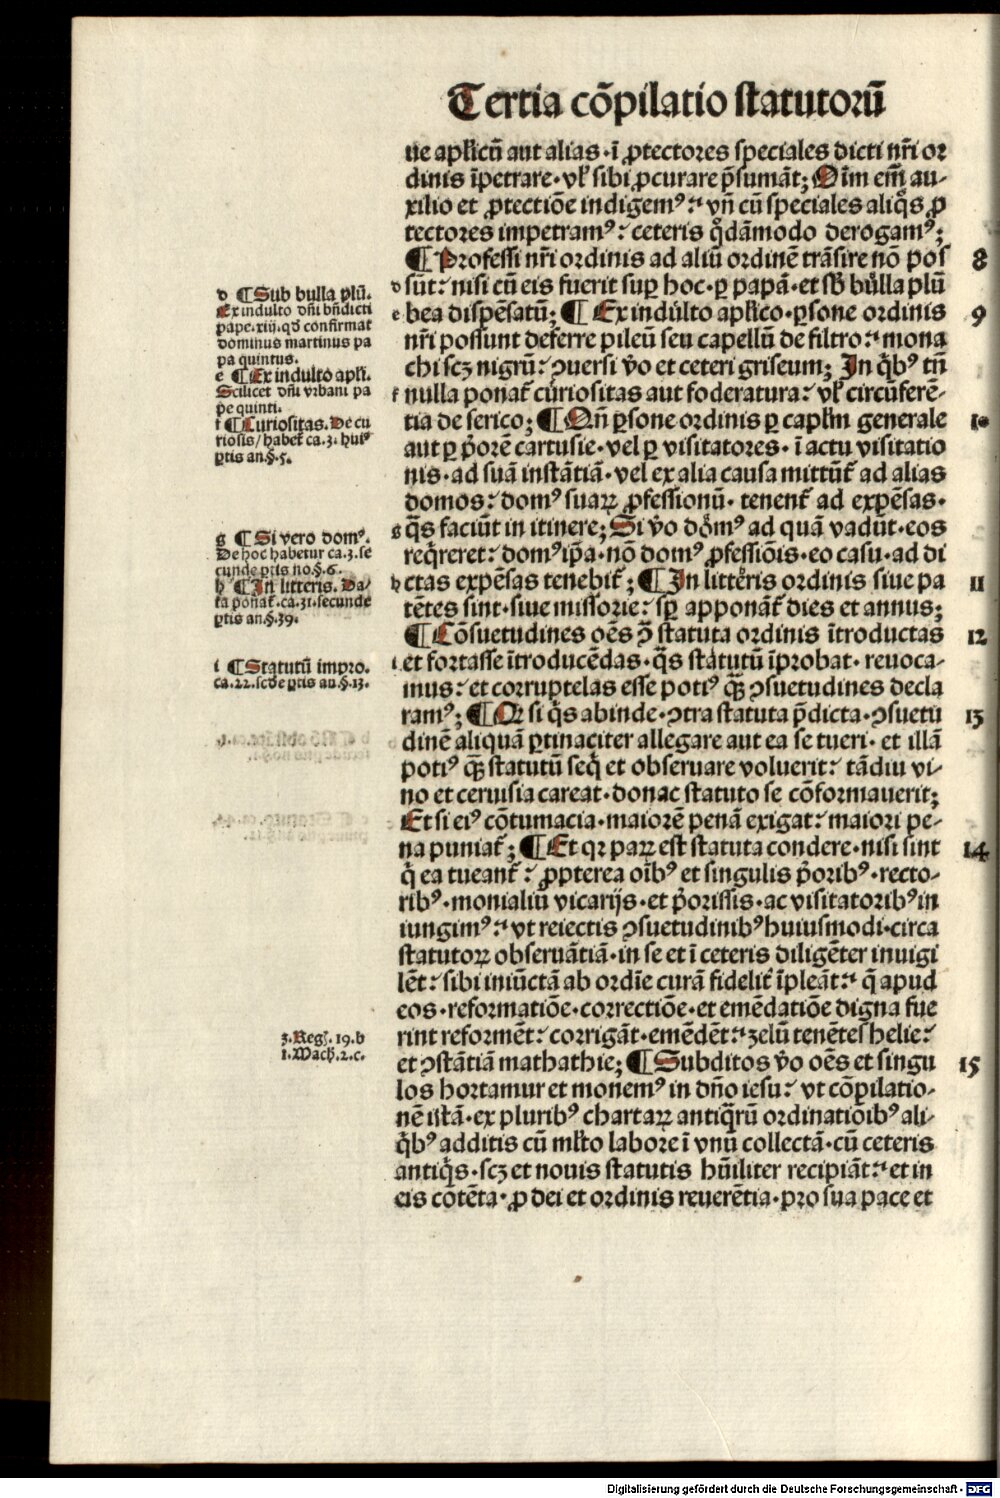 Tertia cõpilatio statutorũ
ue apl'icũ aut alias·ĩ ꝓtectores speciales dicti nr̃i or
dinis ĩpetrare·vl' sibi ꝓcurare p̃sumãt; Oĩm em̃ au-
xilio et ꝓtectiõe indigemꝰ: vñ cũ speciales aliq̃s ꝓ
tectores impetramꝰ: ceteris q̊dãmodo derogamꝰ;
¶ Professi nr̃i ordinis ad aliũ ordinẽ trãsire nõ pos 8
d sũt: nisi cũ eis fuerit suꝑ hoc·ꝑ papã·et sb̃ bulla plũ
e bea dispẽsatũ; ¶ Ex indulto apl'ico·ꝑsone ordinis 9
nr̃i possunt deferre pileũ seu capellũ de filtro: mona
chi scꝫ nigrũ: ꝯuersi v̾o et ceteri griseum; In q̃bꝰ tñ
f nulla ponat᷑ curiositas aut foderatura: vl' circũferẽ-
tia de serico; ¶ Qñ ꝑsone ordinis ꝑ capl'm generale 10
aut ꝑ p̾orẽ cartusie·vel ꝑ visitatores·ĩ actu visitatio
nis·ad suã instãtiã·vel ex alia causa mittũt᷑ ad alias
domos: domꝰ suaꝝ ꝓfessionũ·tenent᷑ ad expẽsas·
g q̃s faciũt in itinere; Si v̾o domꝰ ad quã vadũt·eos
req̃reret: domꝰ ip̃a·nõ domꝰ ꝓfessiõis·eo casu·ad di
h ctas expẽsas tenebit᷑; ¶ In litteris ordinis siue pa 11
tẽtes sint·siue missorie: sꝑ apponãt᷑ dies et annus;
¶ Cõsuetudines oẽs ꝯ̃ statuta ordinis ĩtroductas 12
i et fortasse ĩtroducẽdas·q̃s statutũ ĩprobat·reuoca-
mus: et corruptelas esse potiꝰ q̃ꝫ ꝯsuetudines decla
ramꝰ; ¶ Qr si q̃s abinde·ꝯtra statuta p̃dicta·ꝯsuetu 13
dinẽ aliquã ꝑtinaciter allegare aut ea se tueri·et illã
potiꝰ q̃ꝫ statutũ seq̃ et obseruare voluerit: tãdiu vi-
no et ceruisia careat·donac statuto se cõformauerit;
Et si eiꝰ cõtumacia·maiorẽ penã exigat: maiori pe-
na puniat᷑; ¶ Et qꝛ paꝝ est statuta condere·nisi sint 14
q̃ ea tueant᷑: ꝓpterea oĩbꝰ et singulis p̾oribꝰ·recto-
ribꝰ·monialiũ vicarijs·et p̾orissis·ac visitatoribꝰ in
iungimꝰ: vt reiectis ꝯsuetudinibꝰ huiusmodi·circa
statutoꝝ obseruãtiã·in se et ĩ ceteris diligẽter inuigi
lẽt: sibi iniũctã ab ordĩe curã fidelit᷑ ĩpleãt: q̃ apud
eos·reformatiõe·correctiõe·et emẽdatiõe digna fue
rint reformẽt: corrigãt·emẽdẽt: zelũ tenẽtes helie:
et ꝯstãtiã mathathie; ¶ Subditos v̾o oẽs et singu 15
los hortamur et monemꝰ in dño iesu: vt cõpilatio-
nẽ istã·ex pluribꝰ chartaꝝ antiq̃rũ ordinatiõibꝰ ali-
q̃bꝰ additis cũ ml'to labore ĩ vnũ collectã·cũ ceteris
antiq̃s·scꝫ et nouis statutis hũiliter recipiãt: et in
eis cõtẽta·ꝓ dei et ordinis reuerẽtia·pro sua pace et
d ¶ Sub bulla plũ.
Ex indulto dñi bñdicti
pape.xiij.qd̾ confirmat
dominus martinus pa
pa quintus.
e ¶ Ex indulto apl'i.
Scilicet dñi vrbani pa
pe quinti.
f ¶ Curiositas. De cu
riosis/habet᷑ ca.3.huiꝰ
ꝑtis an.§.5.
g ¶ Si vero domꝰ.
De hoc habetur ca.3.se
cunde ꝑtis no.§.6.
h ¶ In litteris. Da/
ta ponat᷑.ca.31.secunde
ꝑtis an.§.39.
i ¶ Statutũ impro.
ca.22.scd̾e ꝑtis an.§.13.
3.Reg.19.b
1.Mach.2.c.
Digitalisierung gefördert durch die Deutsche Forschungsgemeinschaft - DFG